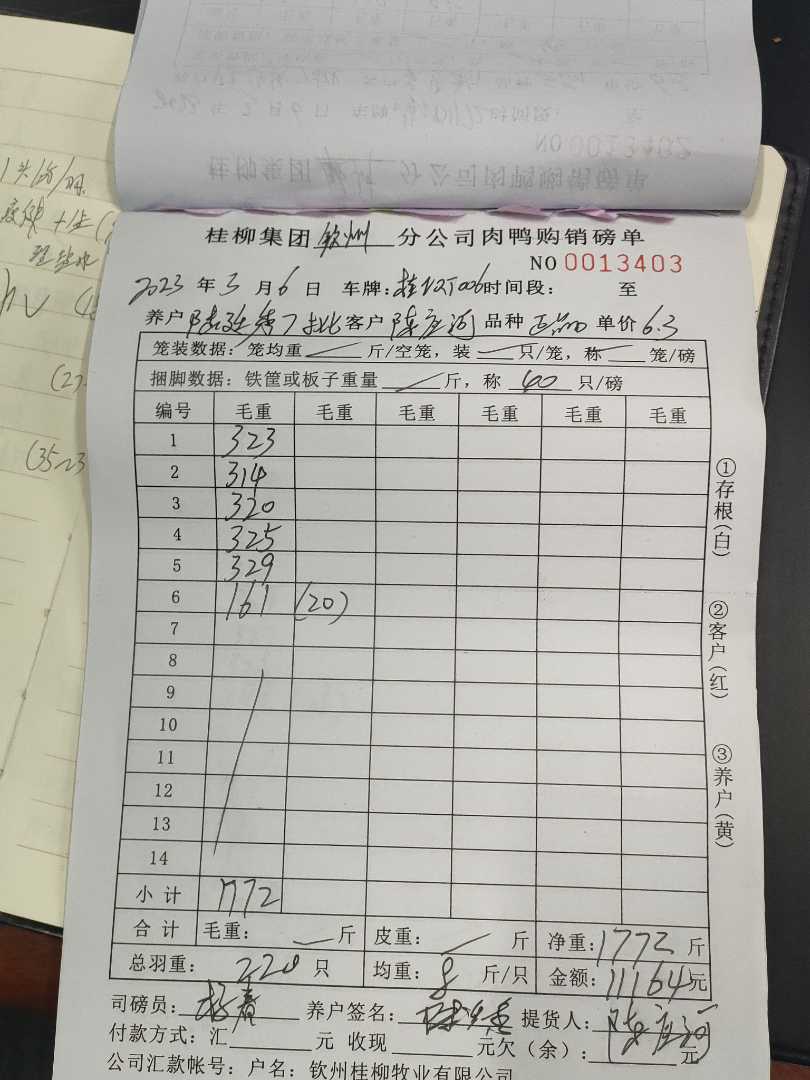 NO 0013402
桂柳集团 钦州 分公司肉鸭购销磅单
NO 0013403
2023 年 3 月 6 日 车牌: 时间段: 至
养户 客户 陈 品种 正品 单价 6.3
笼装数据: 笼均重 斤/空笼, 装 只/笼, 称 笼/磅
捆脚数据: 铁筐或板子重量 斤, 称 40 只/磅
编号 毛重 毛重 毛重 毛重 毛重 毛重
1 323
2 314
3 320
4 325
5 329
6 161 (20)
7
8
9
10
11
12
13
14
小计 1772
合计 毛重: 斤 皮重: 斤 净重: 1772 斤
总羽重: 220 只 均重: 8 斤/只 金额: 11164 元
司磅员: 杨 养户签名: 提货人: 陈
付款方式: 汇 元 收现 元欠(余): 元
公司汇款帐号: 户名: 钦州桂柳牧业有限公司
①存根(白)
②客户(红)
③养户(黄)